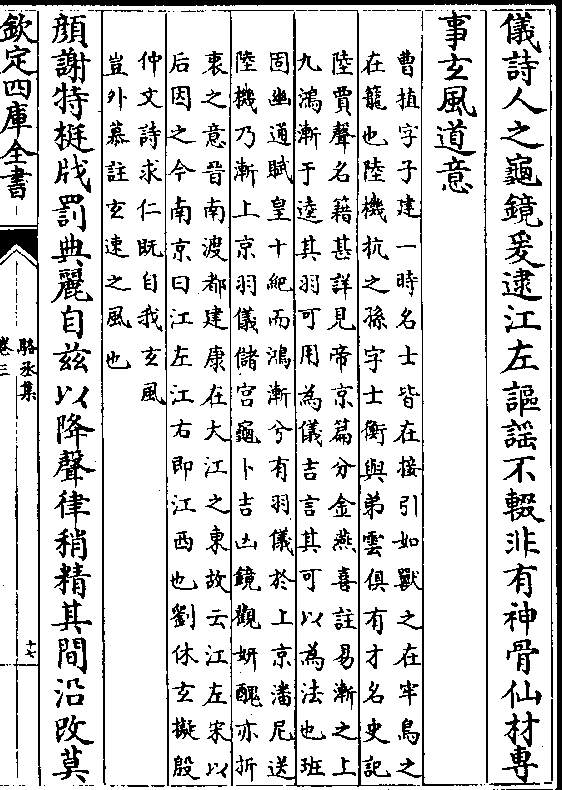 儀詩人之龜鏡爰逮江左謳謡不輟非有神骨仙材專
事玄風道意
曹植字子建一時名士皆在接引如獸之在牢鳥之
在籠也陸機抗之孫字士衡與弟雲俱有才名史記
陸賈聲名籍甚詳見帝京篇分金燕喜註易漸之上
九鴻漸于逵其羽可用為儀吉言其可以為法也班
固幽通賦皇十紀而鴻漸兮有羽儀於上京潘尼送
陸機乃漸上京羽儀儲宫龜卜吉凶鏡觀妍醜亦折
衷之意晉南渡都建康在大江之東故云江左宋以
后因之今南京曰江左江右即江西也劉休玄擬殷
仲文詩求仁既自我玄風
豈外慕註玄速之風也
顔謝特挺戕罰典麗自兹以降聲律稍精其間沿改莫
欽定四庫全書
駱丞集
卷三
十七